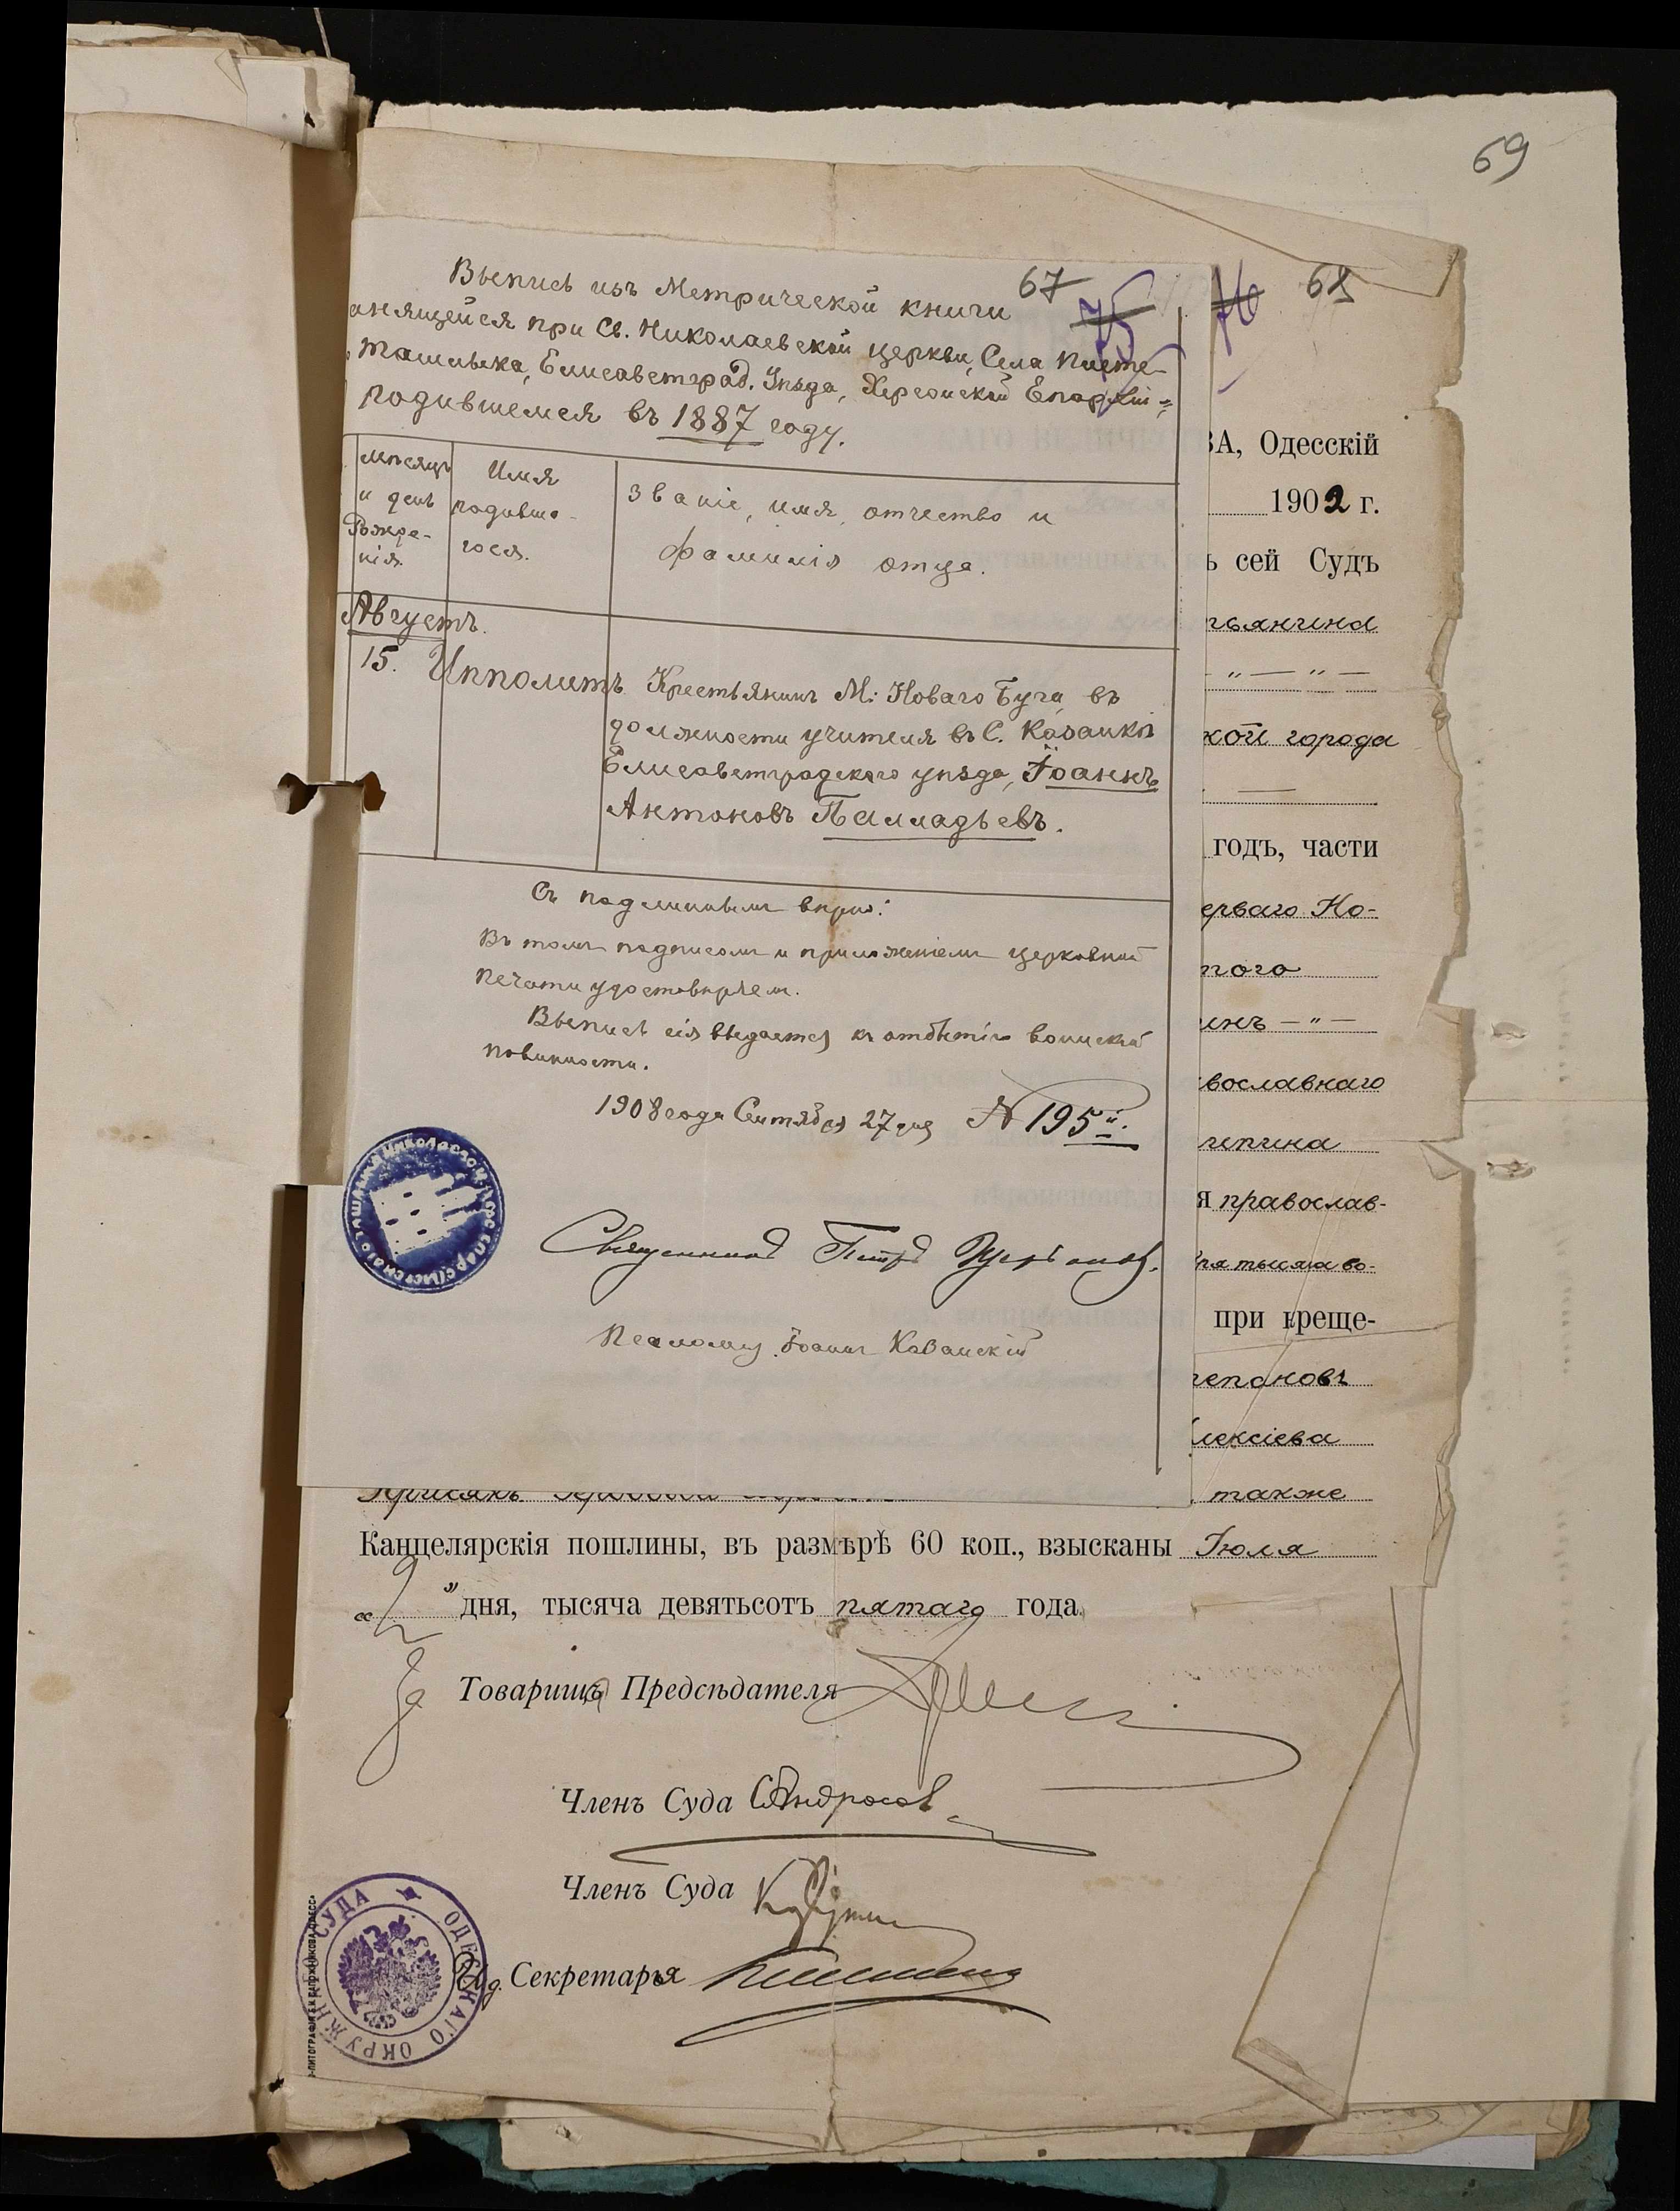 69
67
75
76
68
Выпись изъ Метрической книги
анящейся при Св. Николаевской церкви, Села Писте-
Ташлыка, Елисаветград. Уѣзда, Херсонской Епархіи
родившемся въ 1887 году.
мѣсяцъ и день Рожде-нія.
Имя родивша-гося.
Званіе, имя, отчество и
фамилія отца.
Августъ.
15. Ипполитъ Крестьянинъ М: Новаго Буга, въ
должности учителя въ С. Казанкѣ
Елисаветградскаго уѣзда, Іоаннъ
Антоновъ Палладьевъ.
Съ подлиннымъ вѣрно:
Въ томъ подписомъ и приложеніемъ церковной
печати удостовѣряемъ.
Выпись сія выдается къ отбытію воинской
повинности.
1908 года Сентября 27 дня № 195й.
Священникъ Петръ
Псаломщ. Іоаннъ Казанскій
ВА, Одесскій
1902 г.
ъ сей Судъ
тьянина
кой города
годъ, части
ерваго Но-
того
инъ
вославнаго
пипина
я православ-
ря тысяча во-
при креще-
тепановъ
лексіева
также
Канцелярскія пошлины, въ размѣрѣ 60 коп., взысканы Іюля
" 2 " дня, тысяча девятьсотъ пятаго года.
За Товарища Предсѣдателя
Членъ Суда Андросов
Членъ Суда
Секретаря
ОДЕССКАГО ОКРУЖН СУДА